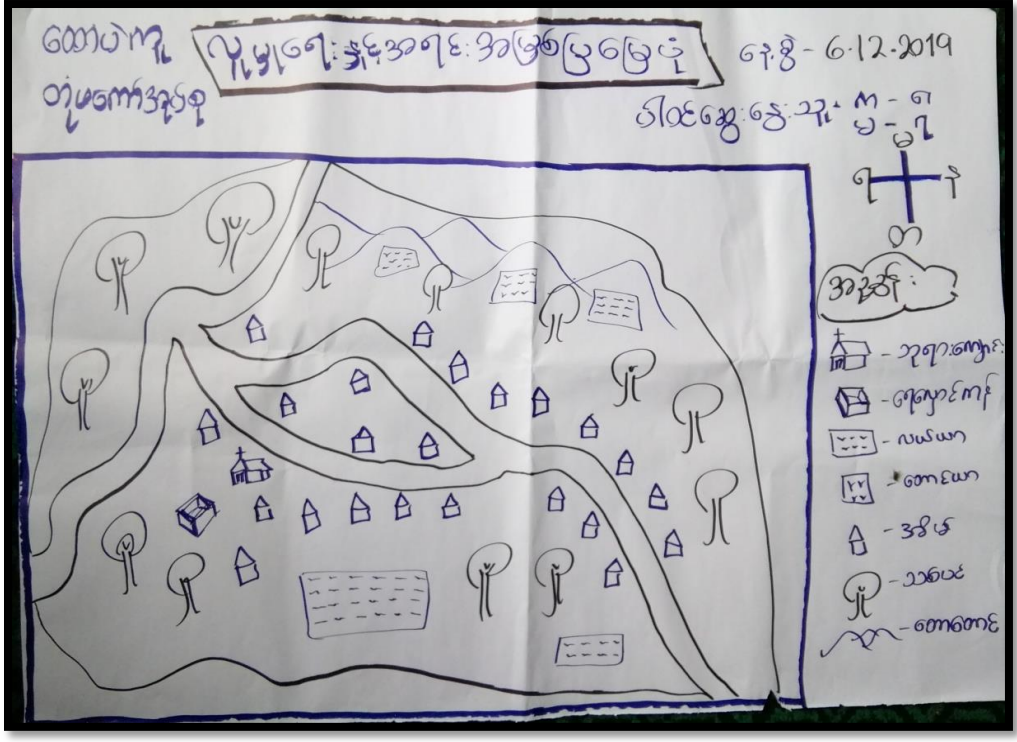 လူမှုရေးနှင့်အရင်းအမြစ်ပြမြေပုံ
နေ့စွဲ - 6.12.2019
ပါဝင်ဆွေးနွေးသူ - ကျ - ၈
မ - ၇
အညွှန်း
ဘုရားကျောင်း
ရေလှောင်ကန်
လယ်ယာ
တောင်ယာ
အိမ်
သစ်ပင်
တောတောင်